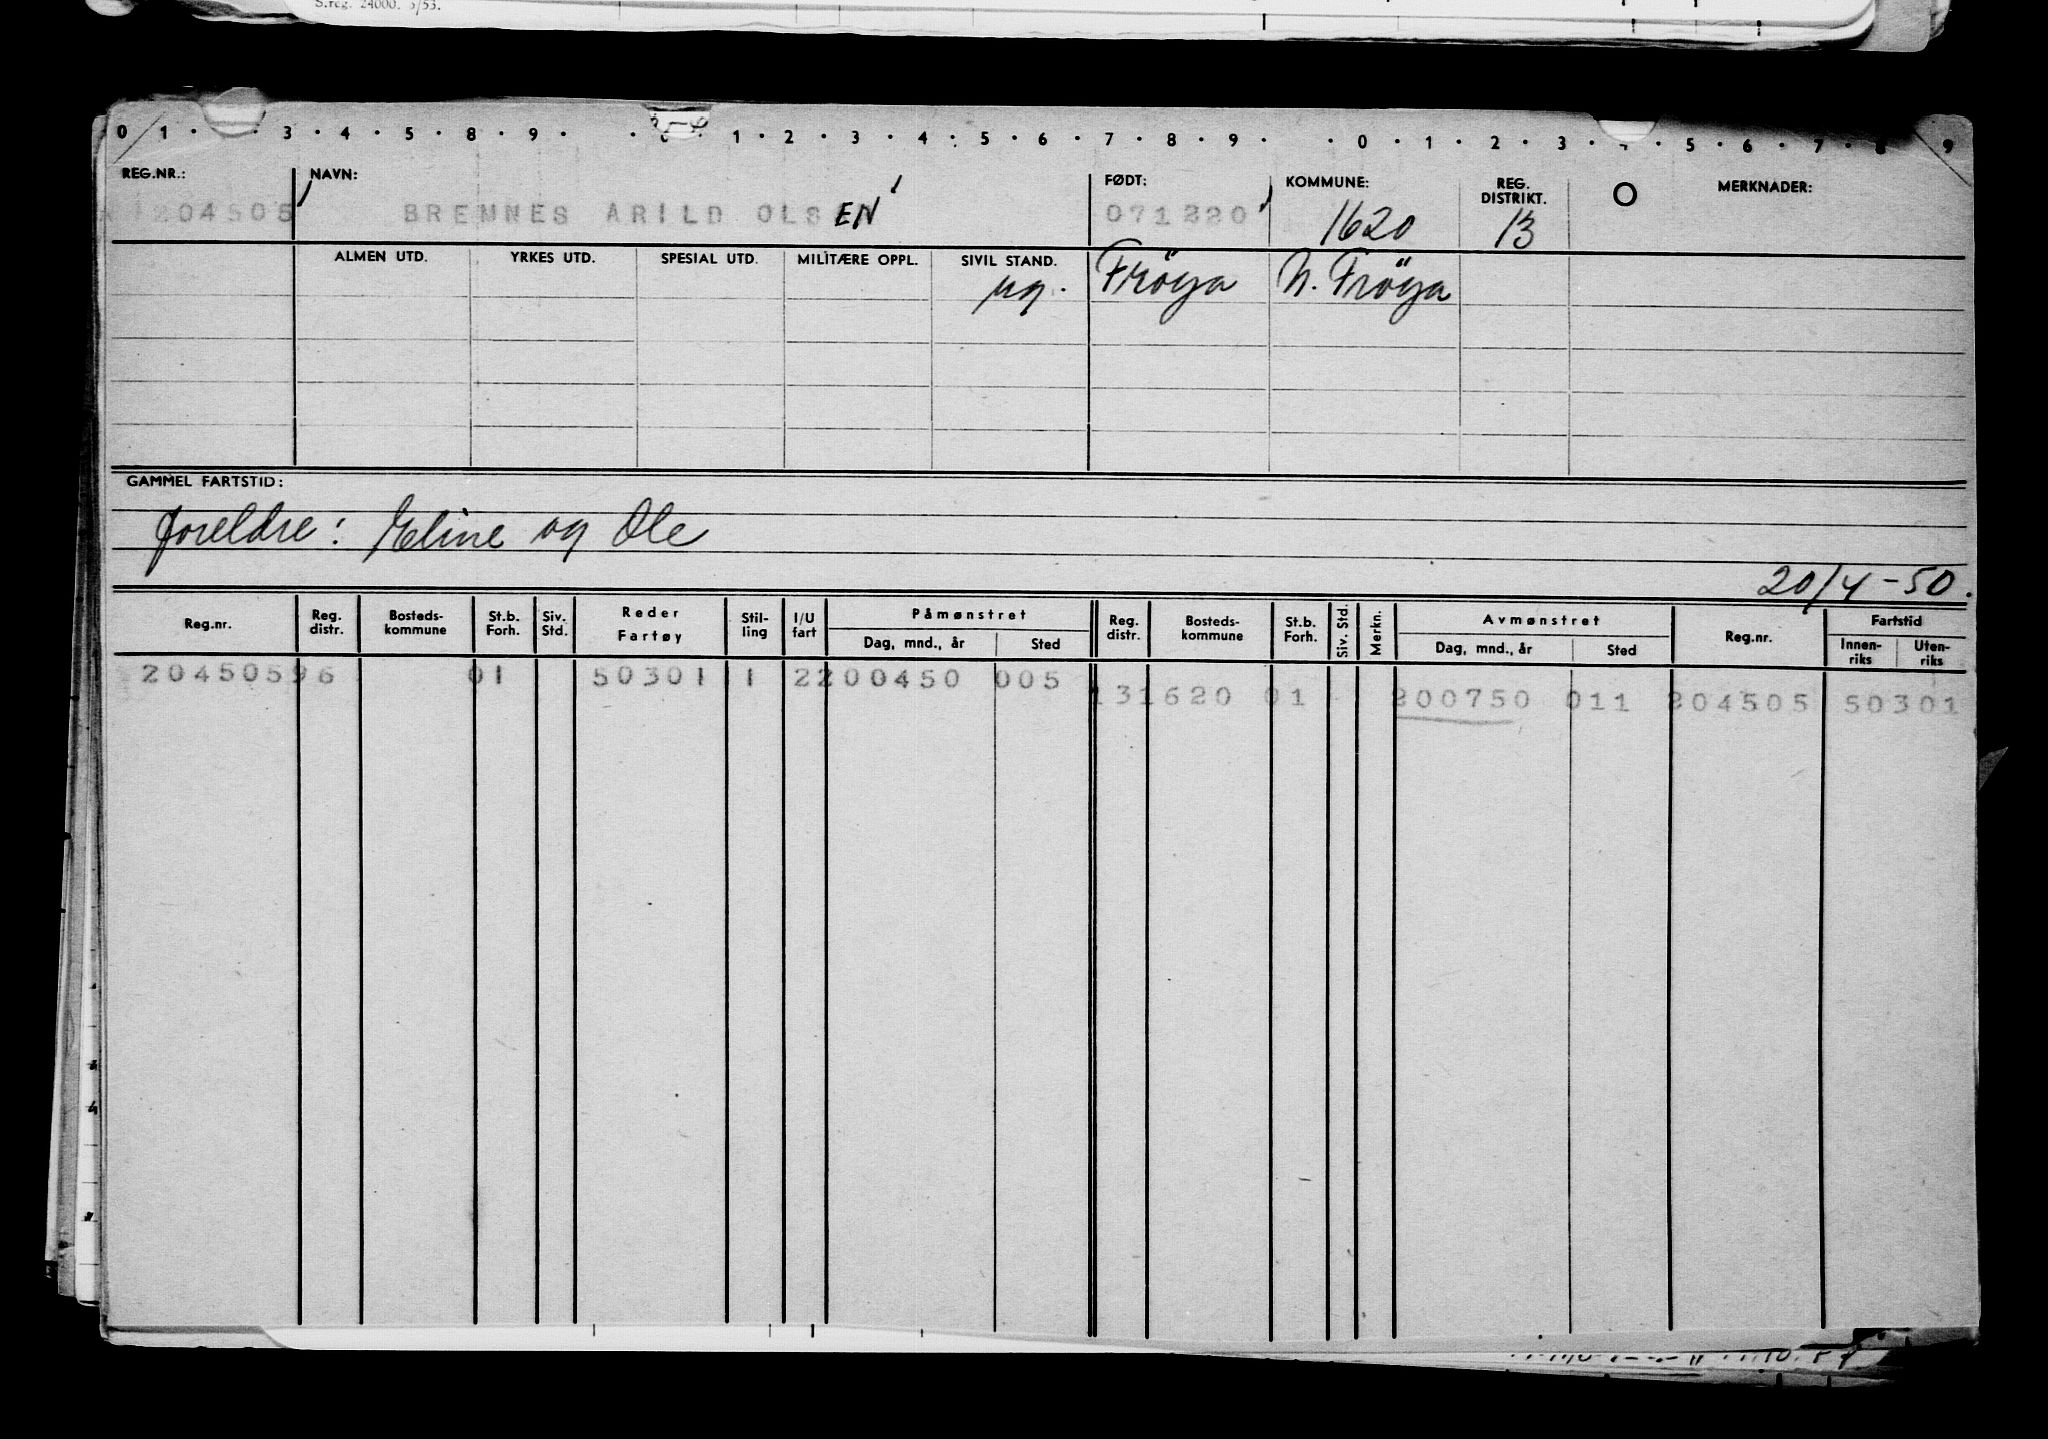 S.reg. 24000. 5/53.
0 1 · · 3 · 4 · 5 · 8 · 9 · · 1 · 2 · 3 · 4 · 5 · 6 · 7 · 8 · 9 · · 0 · 1 · 2 · 3 · · 5 · 6 · 7 · 8 · 9
REG.NR.: NAVN: FØDT: KOMMUNE: REG. DISTRIKT. MERKNADER:
204505 BREMNES ARILD OLSEN 071220 1620 13
ALMEN UTD. YRKES UTD. SPESIAL UTD. MILITÆRE OPPL. SIVIL STAND.
ug. Fröya N. Fröya
GAMMEL FARTSTID:
foreldre: Eline og Ole
20/4-50.
Reg.nr. Reg. distr. Bosteds-kommune St.b. Forh. Siv. Std. Reder Fartøy Stil-ling I/U fart Påmønstret Dag, mnd., år Sted Reg. distr. Bosteds-kommune St.b. Forh. Siv. Std. Merkn. Avmønstret Dag, mnd., år Sted Reg.nr. Fartstid Innen-riks Uten-riks
20450596 01 50301 1 2200450 005
131620 01 200750 011 204505 50301